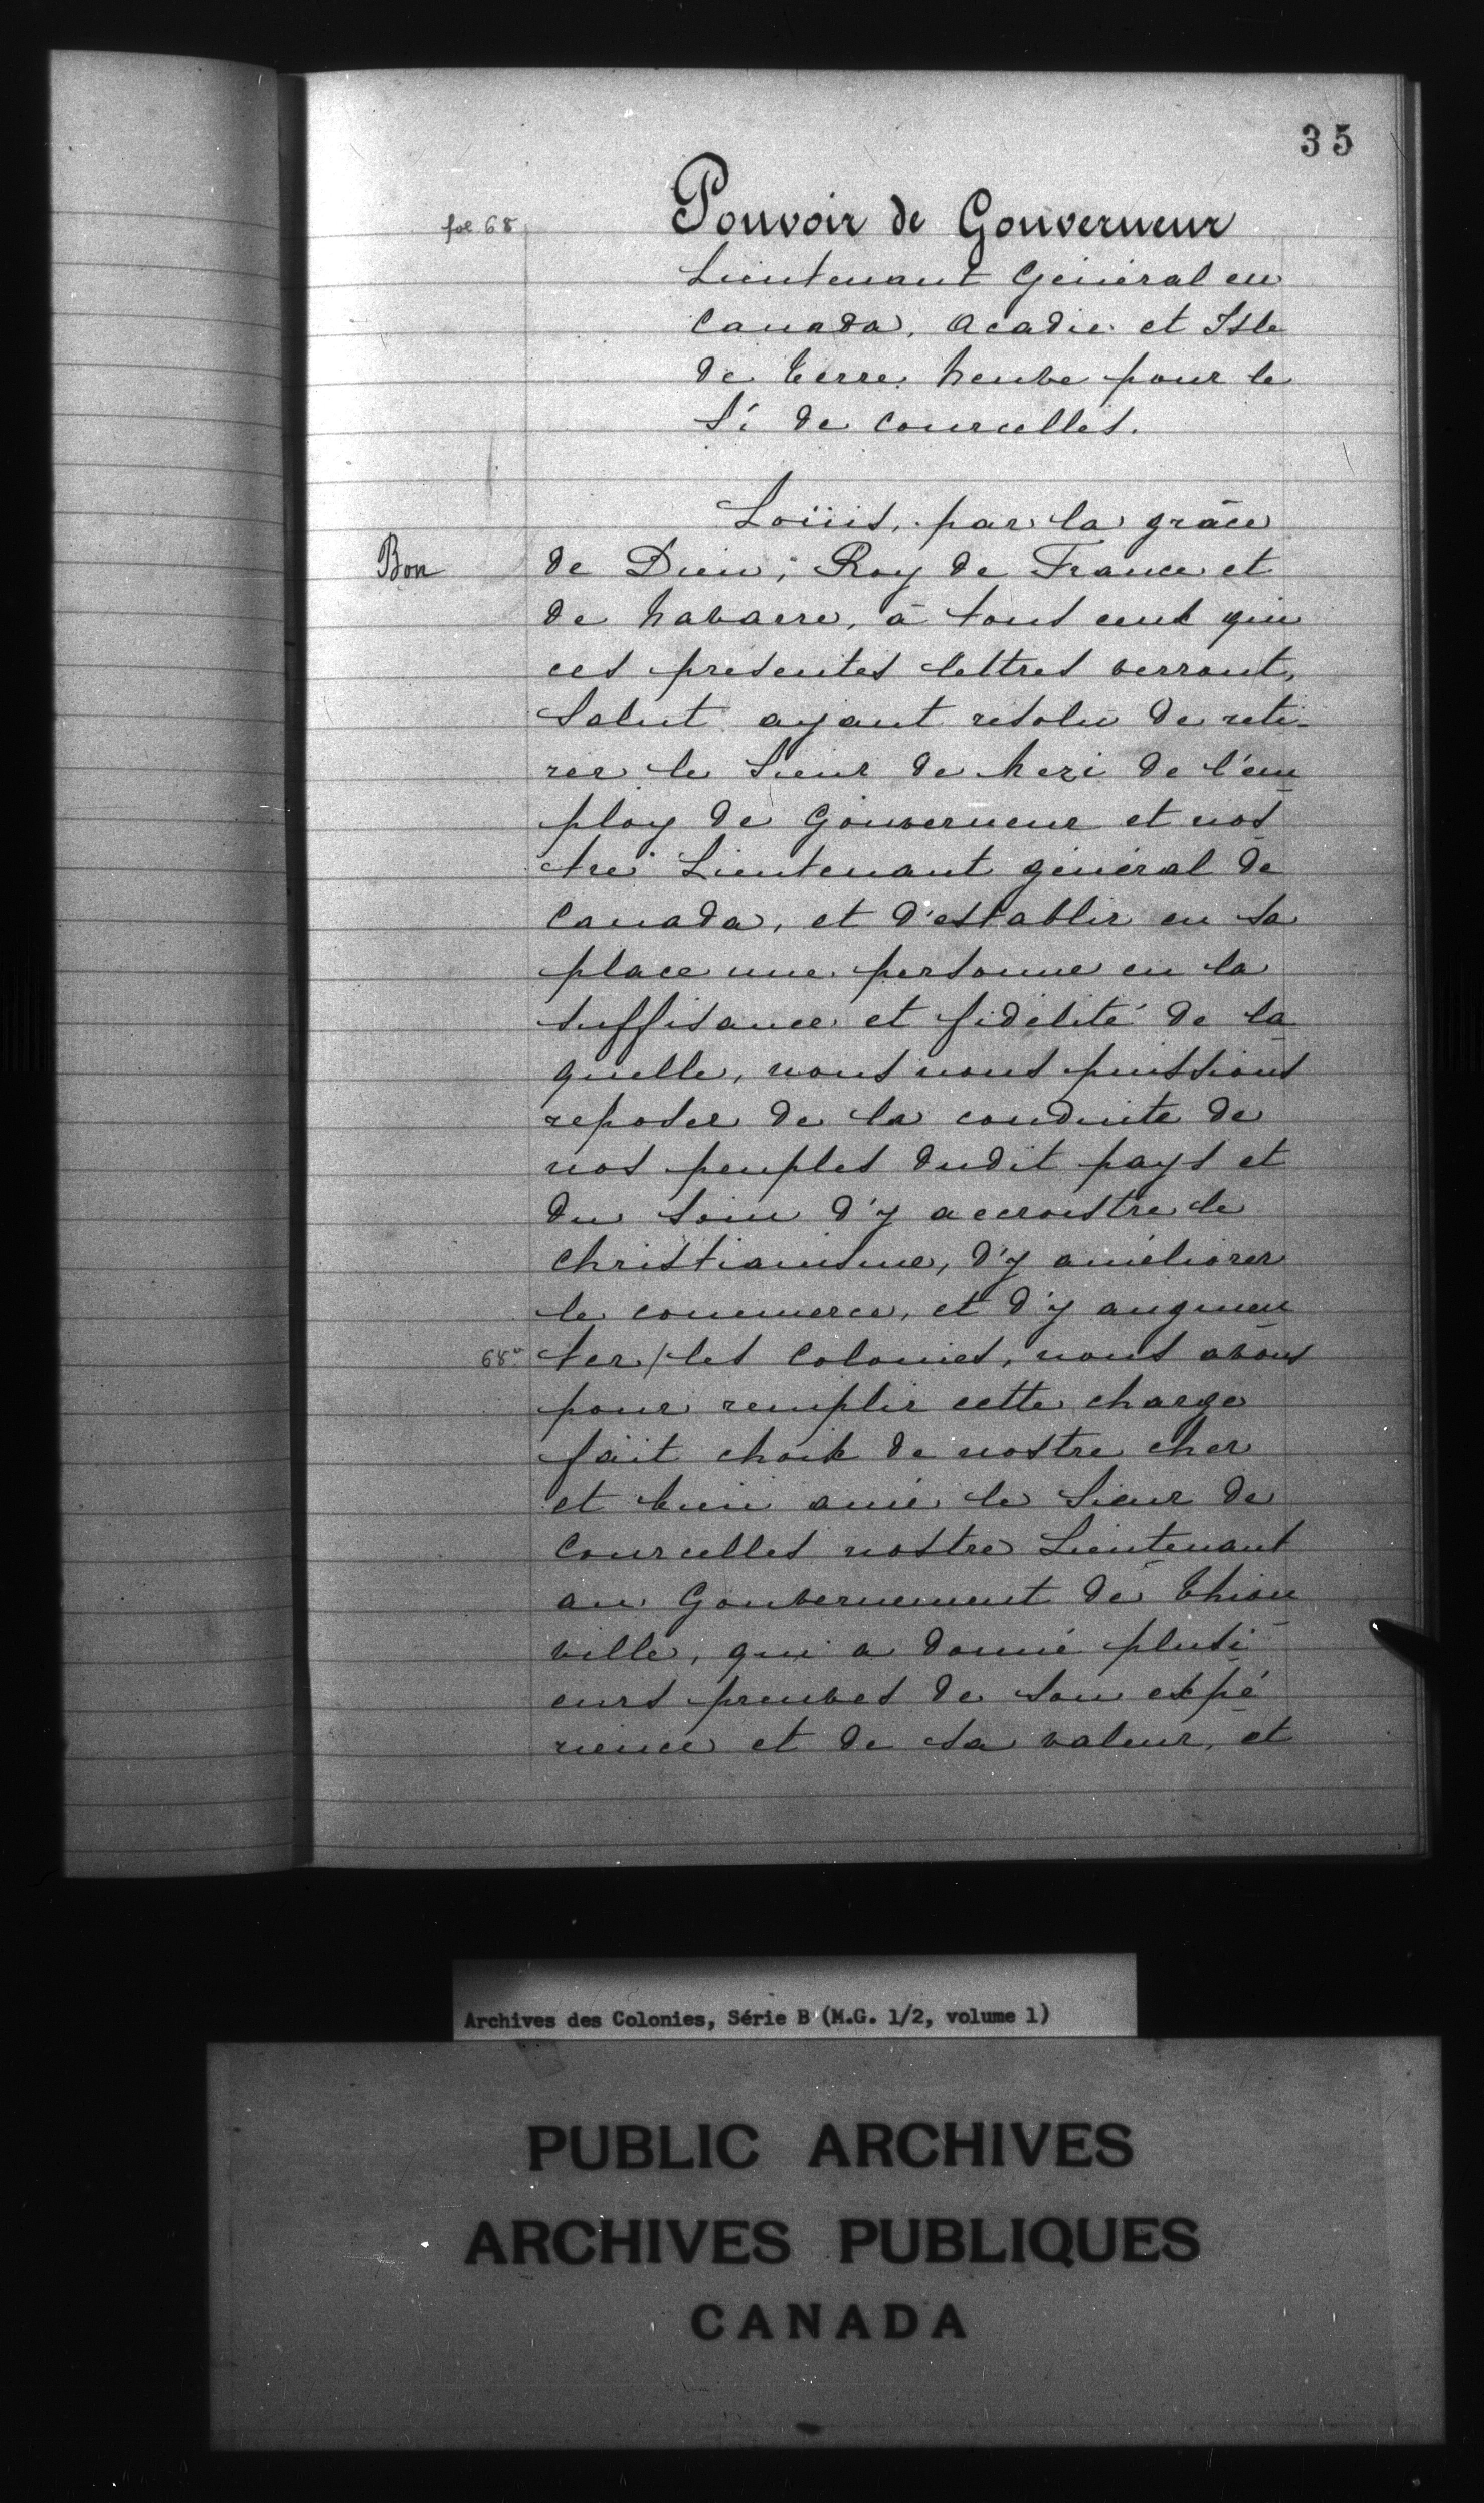 35
fol 68
Pouvoir de Gouverneur
Lieutenant Général en
Canada, Acadie et Isle
de terre neuve pour le
Sr de Courcelles.
Loüis, par la grâce
Bon
de Dieu, Roy de France et
de Navarre, à tous ceux qui
ces presentes lettres verront,
Salut ayant resolu de reti-
rer le Sieur de Mezi de l'em
ploy de Gouverneur et nos
tre Lieutenant général de
Canada, et d'establir en sa
place une personne en la
suffisance et fidélité de la
quelle, nous nous puissions
reposer de la conduite de
nos peuples dudit pays et
du soin d'y accroistre le
christianisme, d'y améliorer
le commerce, et d'y augmen
68v
ter / les Colonies, nous avons
pour remplir cette charge
fait choix de nostre cher
et bien amé le Sieur de
Courcelles nostre Lieutenant
au Gouvernement de Thion
ville, qui a donné plusi
eurs preuves de son expé
rience et de sa valeur, et
Archives des Colonies, Série B (M.G. 1/2, volume 1)
PUBLIC ARCHIVES
ARCHIVES PUBLIQUES
CANADA